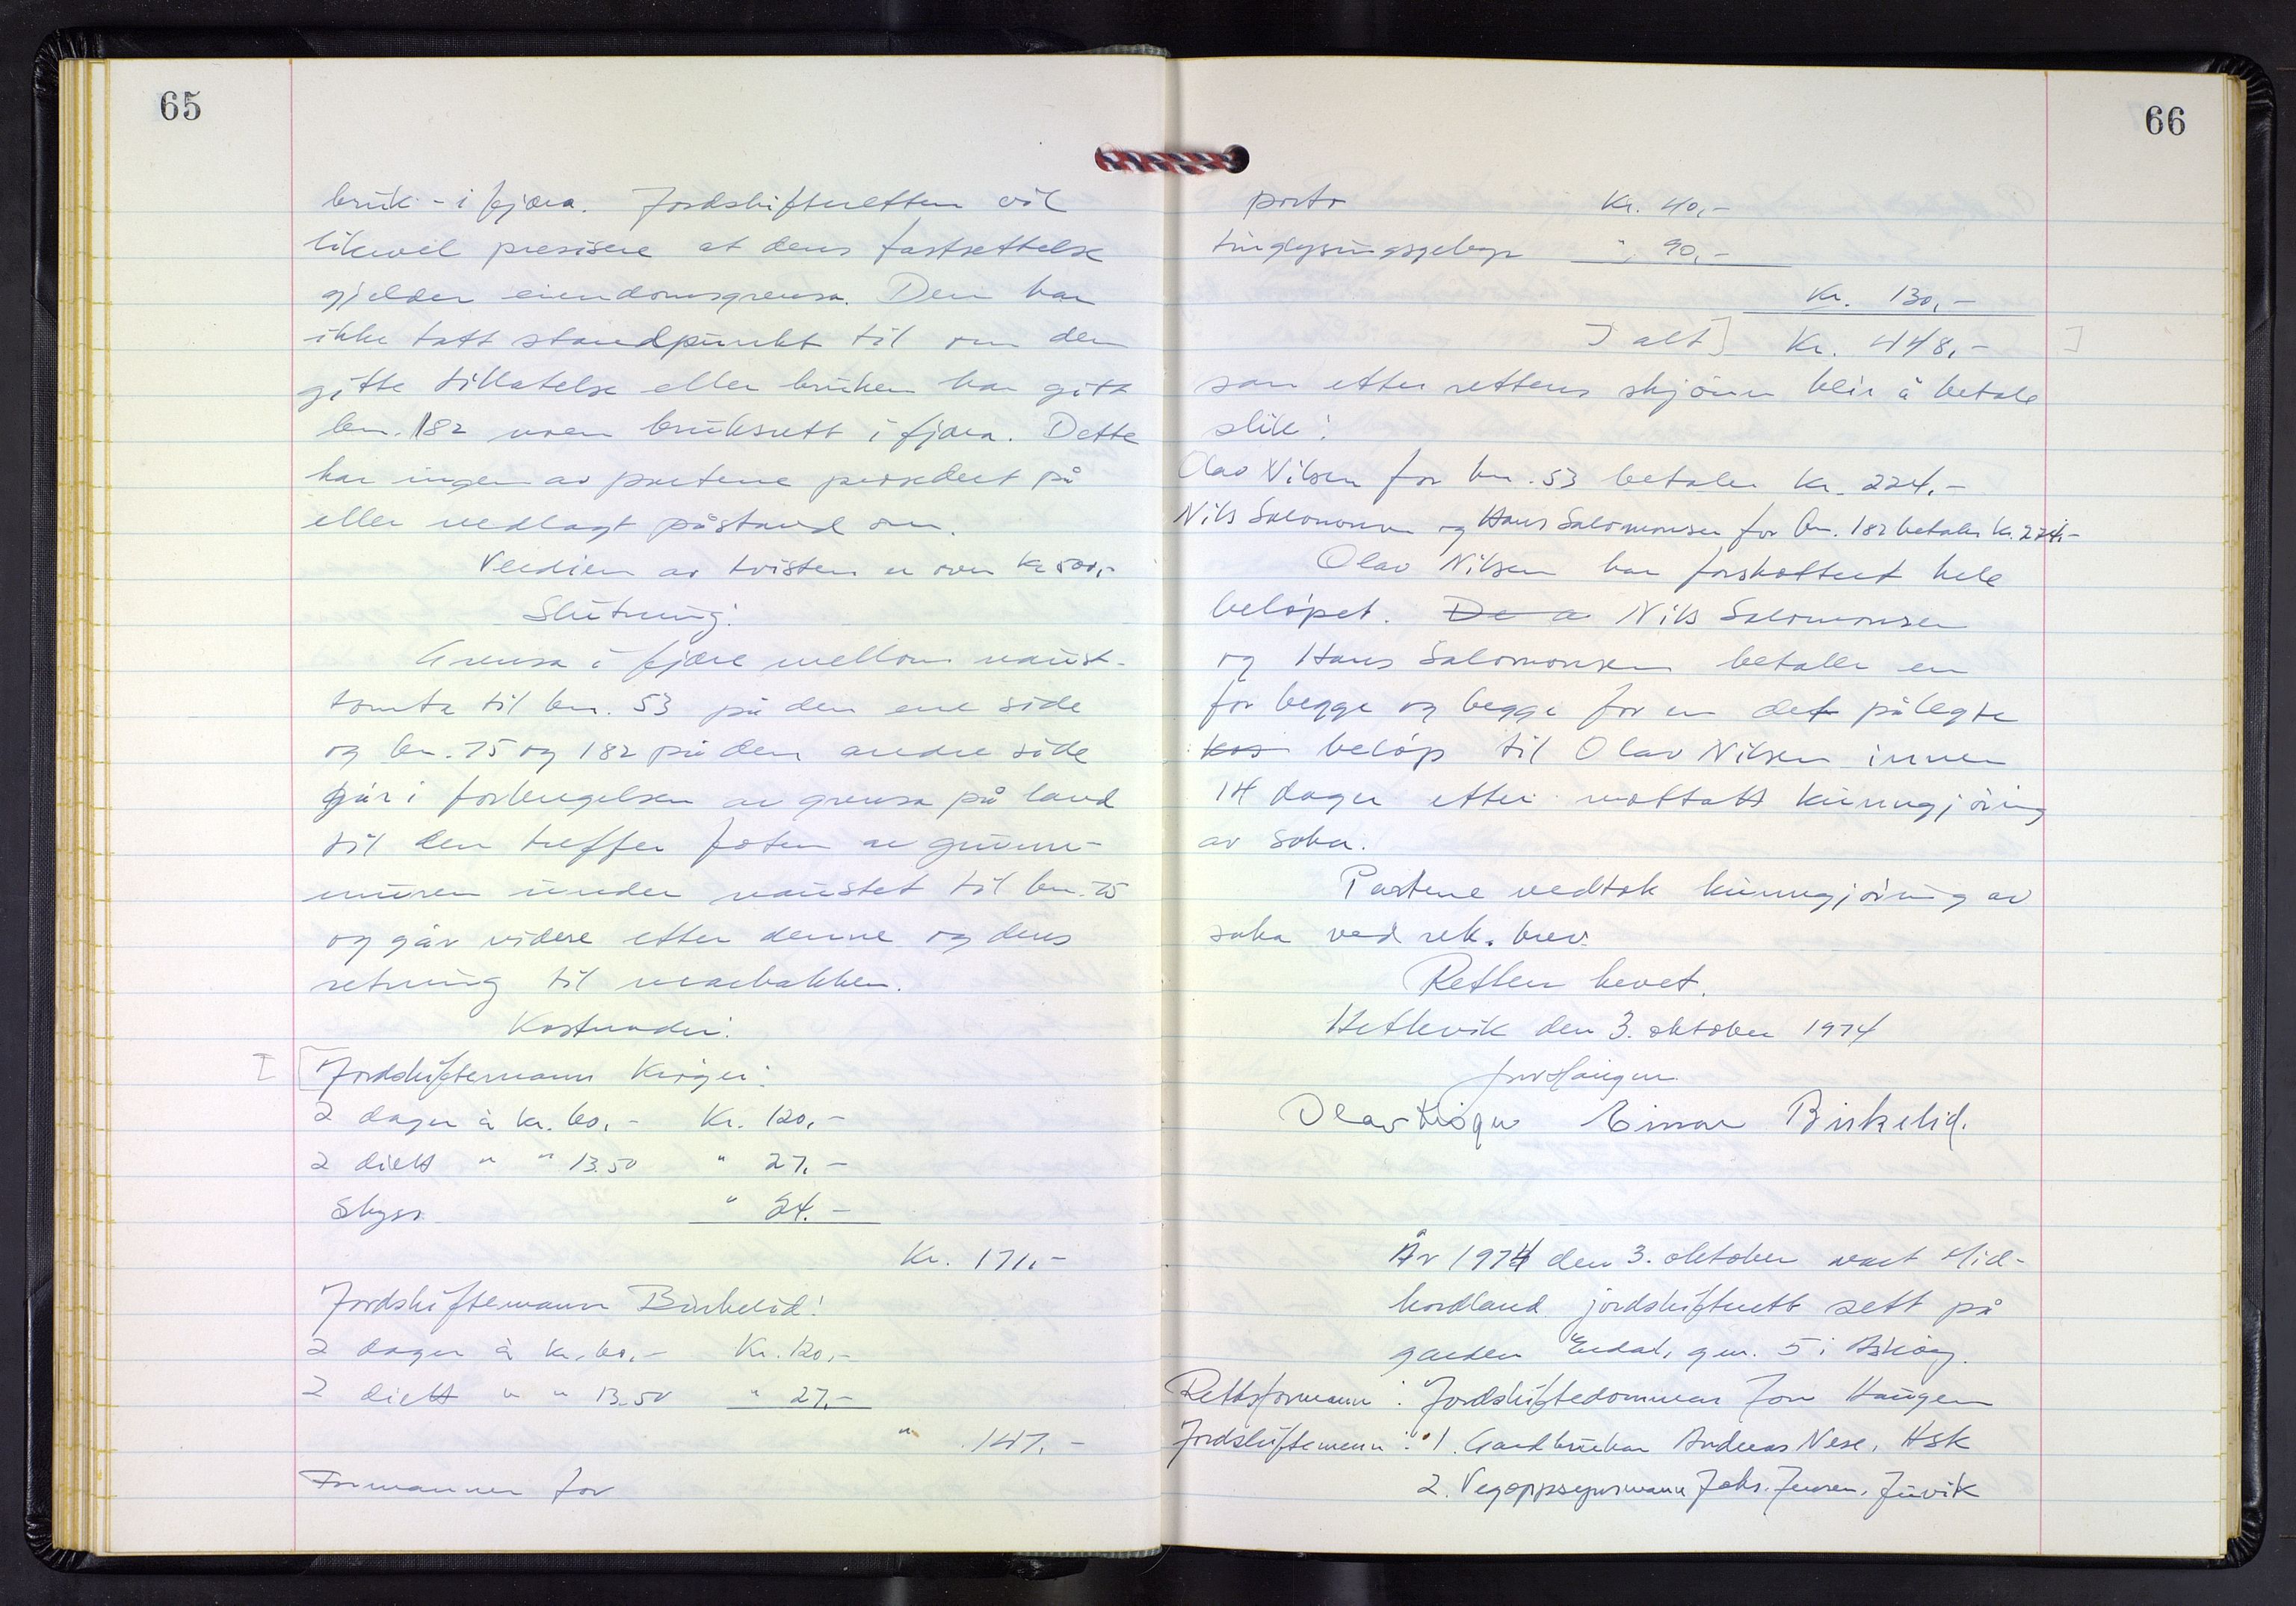 65
bruk - i fjæra. Jordskifteretten vil
likevel presisere at dens fastsettelse
gjelder eiendomsgrensa. Den har
ikke tatt standpunkt til om den
gitte tillatelse eller bruken har gitt
bnr. 182 noen bruksrett i fjæra. Dette
har ingen av partene prosedert på
eller nedlagt påstand om.
Verdien av tvisten er over kr 500,-
Slutning:
Grensa i fjære mellom naust-
tomta til bnr. 53 på den ene side
og bnr. 75 og 182 på den andre side
går i forlengelsen av grensa på land
til den treffer foten av grunn-
muren under naustet til bnr. 75
og går videre etter denne og dens
retning til marbakken.
Kostnader:
Jordskiftemann Kröger:
2 dager à kr. 60,- Kr. 120,-
2 diett " " 13.50 " 27,-
Skyss " 24.-
Kr. 171,-
Jordskiftemann Birkelid:
2 dager à kr. 60,- Kr. 120,-
2 diett " " 13.50 " 27,-
" 147,-
Formannen for
66
porto Kr. 40,-
tinglysingsgebyr " 90,-
Kr. 130,-
I alt] Kr. 448,- ]
som etter rettens skjönn blir å betale
slik:
Olav Nilsen for bnr. 53 betaler kr. 224,-
Nils Salomonsen og Hans Salomonsen for bnr. 182 betaler kr. 224,-
Olav Nilsen har forskottert hele
belöpet. De a Nils Salomonsen
og Hans Salomonsen betaler en
for begge og begge for en det pålegte
kos belöp til Olav Nilsen innen
14 dager etter mottatt kunngjöring
av saka.
Partene vedtok kunngjöring av
saka ved rek. brev.
Retten hevet.
Hetlevik den 3. oktober 1974
Jon Haugen
Olav Kröger Einar Birkelid.
År 1974 den 3. oktober vart Mid-
hordland jordskifterett sett på
garden Erdal, gnr. 5 i Asköy.
Rettsformann: Jordskiftedommar Jon Haugen
Jordskiftemenn: 1. Gardbrukar Andreas Nese, Hsk
2. Vegoppsynsmann Johs. Jensen, Juvik